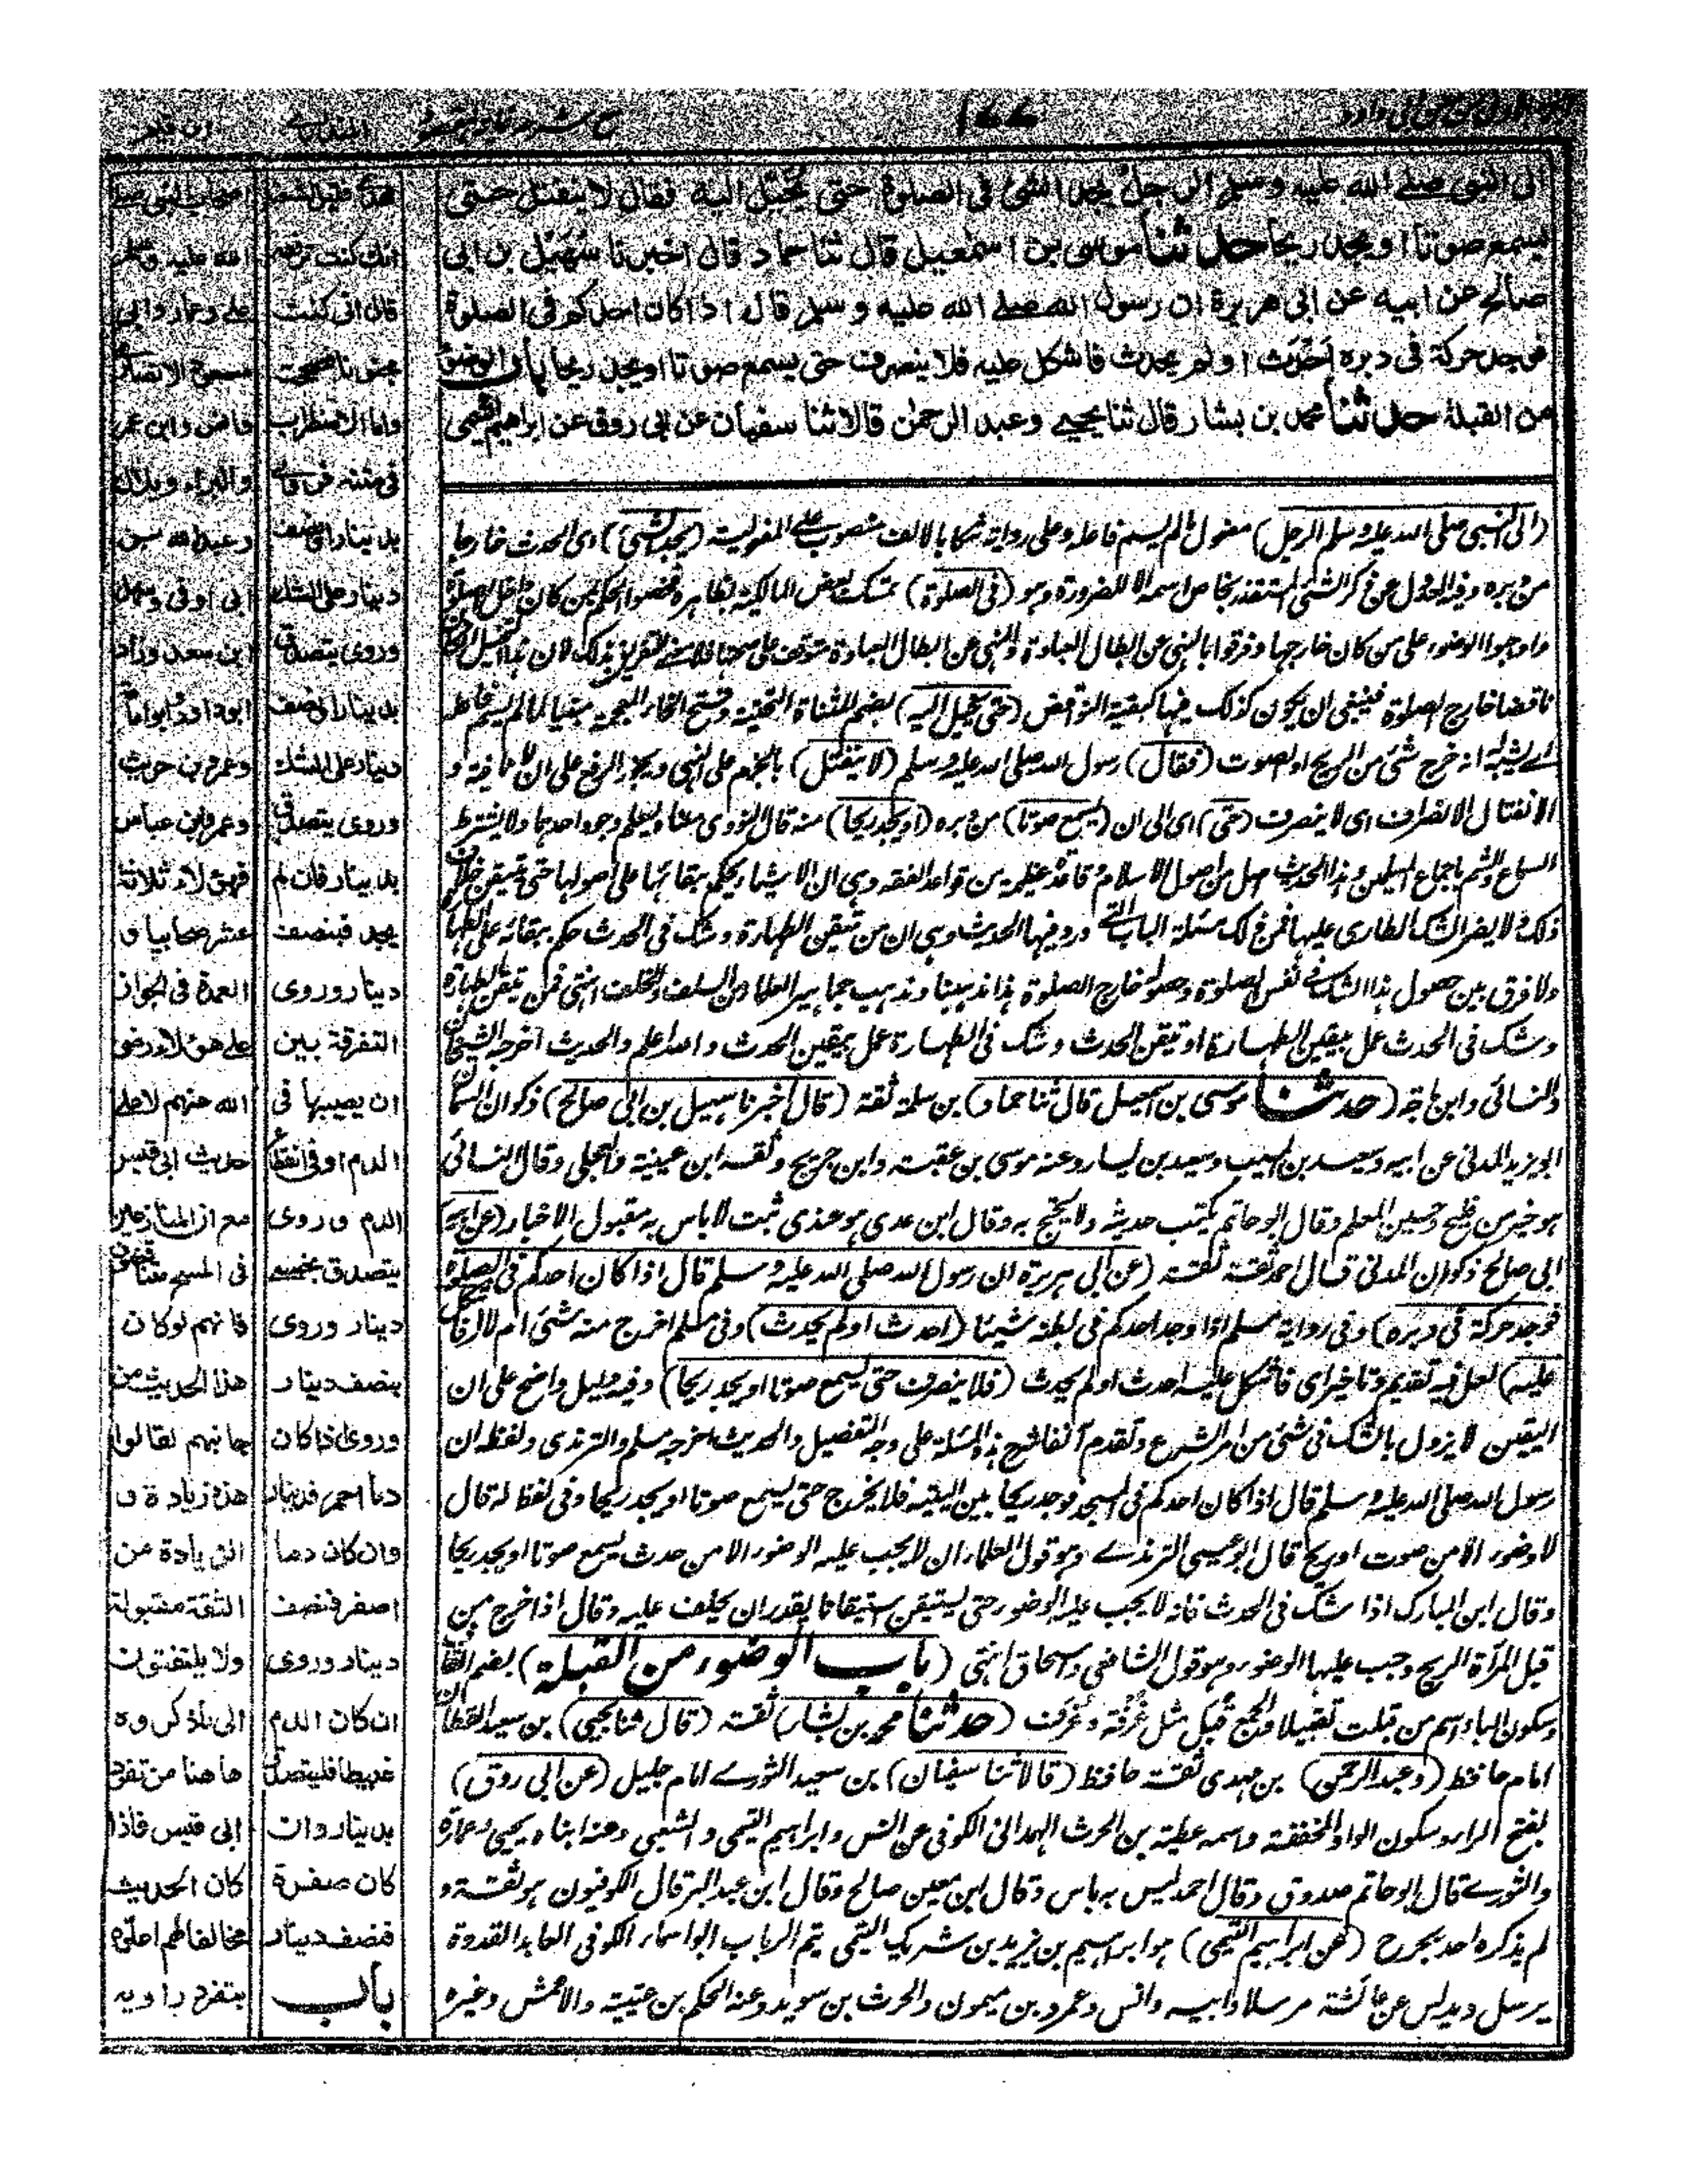 ١٦٦
الى النبى صلے الله عليه وسلم الرجل يجد الشئ فى الصلوة حتى يُخَيَّل اليه فقال لا ينفتل حتى
يسمع صوتا او يجد ريحا حدثنا موسى بن اسمٰعيل قال ثنا حماد قال اخبرنا سُهَيْل بن ابى
صالح عن ابيه عن ابى هريرة ان رسول الله صلے الله عليه وسلم قال اذا كان احدكم فى الصلوة
فوجد حركة فى دبره اَحْدَث او لم يحدث فاشكل عليه فلا ينصرف حتى يسمع صوتا او يجد ريحا باب الوضوء
من القبلة حدثنا محمد بن بشار قال ثنا يحيے وعبد الرحمٰن قالا ثنا سفيان عن ابى روق عن ابراهيم التيمى
(الى النبى صلى الله عليه وسلم الرجل) مفعول ما لم يسم فاعله وعلى رواية شكا بالالف منصوب على المفعولية (يجد الشئ) اى الحدث خارجا
من دبره وفيه العدول عن ذكر الشئ المستقذر بخاص اسمه الا للضرورة وهو (فى الصلوة) تمسك بعض المالكية بظاهره فخصوا الحكم بمن كان داخل الصلوة
واوجبوا الوضوء على من كان خارجها وفرقوا بالنهى عن ابطال العبادة والنهى عن ابطال العبادة متوقف على صحتها فلا معنى للتفريق بذلك لان هذا التخيل ان كان
ناقضا خارج الصلوة فينبغى ان يكون كذلك فيها كبقية النواقض (حتى يخيل اليه) بضم المثناة التحتية وفتح الخاء المعجمة مبنيا لما لم يسم فاعله
اے يشبه له انه خرج شئ من الريح او الصوت (فقال) رسول الله صلى الله عليه وسلم (لا ينفتل) بالجزم على النهى ويجوز الرفع على ان لا نافية و
الانفتال الانصراف اى لا ينصرف (حتى) اى الى ان (يسمع صوتا) من دبره (او يجد ريحا) منه قال النووى معناه يعلم وجود احدهما ولا يشترط
السماع والشم باجماع المسلمين وهذا الحديث اصل من اصول الاسلام وقاعدة عظيمة من قواعد الفقه وهى ان الاشياء يحكم ببقائها على اصولها حتى يتيقن خلاف
ذلك ولا يضر الشك الطارى عليها فمن ذلك مسئلة الباب التى ورد فيها الحديث وهى ان من تيقن الطهارة وشك فى الحدث حكم ببقائه على الطهارة
ولا فرق بين حصول هذا الشك فى نفس الصلوة وحصوله خارج الصلوة هذا مذهبنا ومذهب جماهير العلماء من السلف والخلف انتهى فمن تيقن الطهارة
وشك فى الحدث عمل بيقين الطهارة او تيقن الحدث وشك فى الطهارة عمل بيقين الحدث والله اعلم والحديث اخرجه الشيخان
والنسائى وابن ماجة (حدثنا موسى بن اسمعيل قال ثنا حماد) بن سلمة ثقة (قال اخبرنا سهيل بن ابى صالح) ذكوان السمان
ابو يزيد المدنى عن ابيه وسعيد بن المسيب وسعيد بن يسار وعنه موسى بن عقبة وابن جريج وثقه ابن عيينة والعجلى وقال النسائى
هو خير من فليح وحسين المعلم وقال ابو حاتم يكتب حديثه ولا يحتج به وقال ابن عدى هو عندى ثبت لا باس به مقبول الاخبار (عن ابيه)
ابى صالح ذكوان المدنى قال احمد ثقة ثقة (عن ابى هريرة ان رسول الله صلى الله عليه وسلم قال اذا كان احدكم فى الصلوة
فوجد حركة فى دبره) وفى رواية مسلم اذا وجد احدكم فى بطنه شيئا (احدث او لم يحدث) وفى مسلم اخرج منه شئ ام لا (فاشكل
عليه) لعل فيه تقديم وتاخير اى فاشكل عليه احدث او لم يحدث (فلا ينصرف حتى يسمع صوتا او يجد ريحا) وفيه دليل واضح على ان
اليقين لا يزول بالشك فى شئ من امر الشرع وتقدم آنفا شرح هذه المسئلة على وجه التفصيل والحديث اخرجه مسلم والترمذى ولفظه ان
رسول الله صلى الله عليه وسلم قال اذا كان احدكم فى المسجد فوجد ريحا بين اليتيه فلا يخرج حتى يسمع صوتا او يجد ريحا وفى لفظ له قال
لا وضوء الا من صوت او ريح قال ابو عيسى الترمذے وهو قول العلماء ان لا يجب عليه الوضوء الا من حدث يسمع صوتا او يجد ريحا
وقال ابن المبارك اذا شك فى الحدث فانه لا يجب عليه الوضوء حتى يستيقن استيقانا يقدر ان يحلف عليه وقال اذا خرج من
قبل المرأة الريح وجب عليها الوضوء وهو قول الشافعى واسحاق انتهى (باب الوضوء من القبلة) بضم القاف
وسكون الباء اسم من قبلت تقبيلا والجمع قُبَل مثل غُرْفة وغُرَف (حدثنا محمد بن بشار) ثقة (قال ثنا يحيى) بن سعيد القطان
امام حافظ (وعبد الرحمن) بن مهدى ثقة حافظ (قالا ثنا سفيان) بن سعيد الثورے امام جليل (عن ابى روق)
بفتح الراء وسكون الواو المخففة واسمه عطية بن الحرث الهمدانى الكوفى عن انس وابراهيم التيمى والشعبى وعنه ابناه يحيى وعمارة
والثورے قال ابو حاتم صدوق وقال احمد ليس به باس وقال ابن معين صالح وقال ابن عبد البر قال الكوفيون هو ثقة و
لم يذكره احد بجرح (عن ابراهيم التيمى) هو ابراهيم بن يزيد بن شريك التيمى تيم الرباب ابو اسماء الكوفى العابد القدوة
يرسل ويدلس عن عائشة مرسلا وابيه وانس وعمرو بن ميمون والحرث بن سويد وعنه الحكم بن عتيبة والاعمش وغيره
قال انى كنت
واما الاضطراب
فى متنه فروے
بدينار او نصف
دينار على الشك
وروى يتصدق
بدينار او نصف
دينار على الشك
وروى يتصدق
بدينار فان لم
يجد فبنصف
دينار وروى
التفرقة بين
ان يصيبها فى
الدم او فى انقطاع
الدم وروى
يتصدق بخمسے
دينار وروى
بنصف دينار
وروى اذا كان
دما احمر فدينار
وان كان دما
اصفر فنصف
دينار وروى
ان كان الدم
عبيطا فليتصدق
بدينار وان
كان صفرة
فنصف دينار
باب
الله عليه وسلم
على وعمار وابى
مسعود الانصارى
وانس وابن عمر
والبراء وبلال
وعبد الله بن
ابى اوفى وسهل
ابن سعد وزاد
ابو داود وابو امامة
وعمرو بن حريث
وعمر وابن عباس
فهؤلاء ثلاثة
عشر صحابيا و
العمدة فى الجواز
على هؤلاء رضى
الله عنهم لا على
حديث ابى قيس
مع ان المنازعين
فى المسح متناقضون
فانهم لو كان
هذا الحديث من
جانبهم لقالوا
هذه زيادة و
الزيادة من
الثقة مقبولة
ولا يلتفتون
الى ما ذكروه
ها هنا من تفرد
ابى قيس فاذا
كان الحديث
مخالفا لهم اعلوه
بتفرد راويه